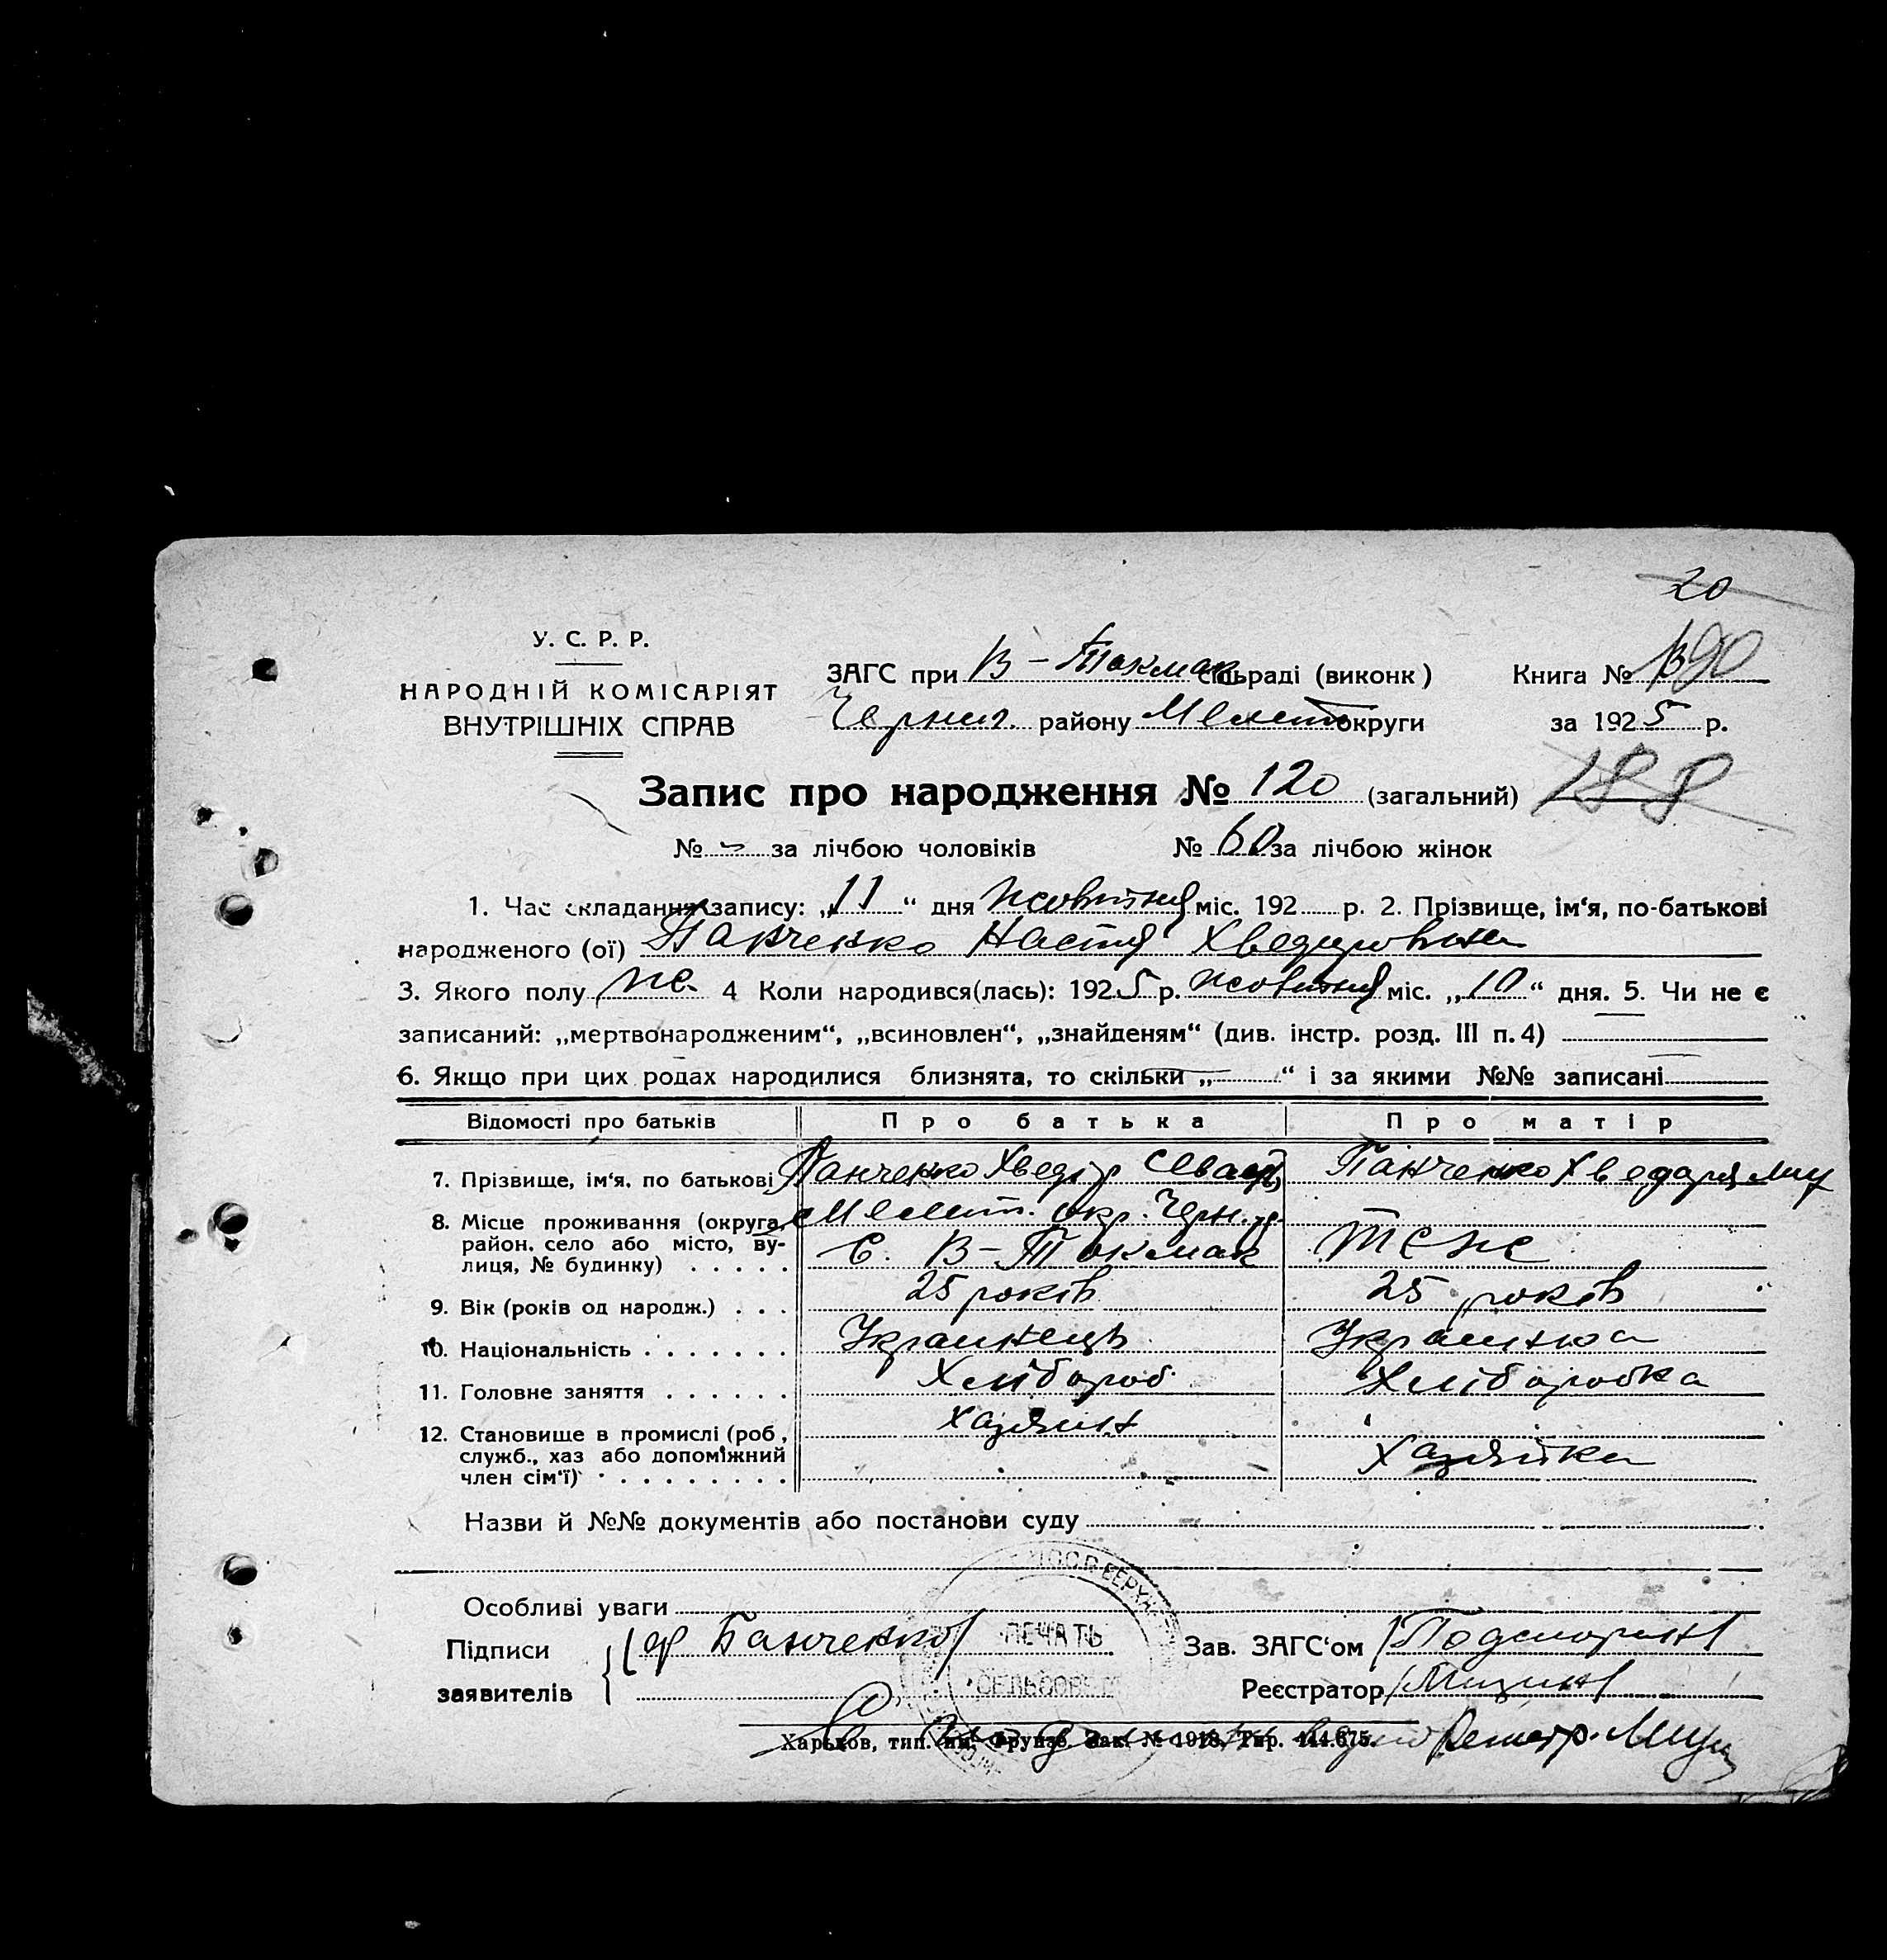 20
У. С. Р. Р.
НАРОДНІЙ КОМІСАРІЯТ
ВНУТРІШНІХ СПРАВ
ЗАГС при В-Токмак сільраді (виконк)
Черниг. району Меліт округи
Книга № 90
за 1925 р.
Запис про народження № 120 (загальний) 188
№ за лічбою чоловіків № 60 за лічбою жінок
1. Час складання запису: „11“ дня жовтня міс. 192 р. 2. Прізвище, ім‘я, по-батькові
народженого (ої) Панченко Настя Хведоровна
3. Якого полу же. 4 Коли народився(лась): 1925 р. жовтня міс. „10“ дня. 5. Чи не є
записаний: „мертвонародженим“, „всиновлен“, „знайденям“ (див. інстр. розд. III п. 4)
6. Якщо при цих родах народилися близнята, то скільки „ “ і за якими №№ записані
Відомості про батьків Про батька Про матір
7. Прізвище, ім‘я, по батькові Панченко Хведір Панченко
8. Місце проживання (округа, Меліт. окр. Черн. р.
район, село або місто, ву- с. В-Токмак теже
лиця, № будинку)
9. Вік (років од народж.) 25 років 25 років
10. Національність Украинець Украинка
11. Головне заняття Хлібороб Хліборобка
12. Становище в промислі (роб, хазяин
служб., хаз або допоміжний Хазяйка
член сім‘ї)
Назви й №№ документів або постанови суду
Особливі уваги
Підписи
заявителів
ПЕЧАТЬ
СЕЛЬСОВЕТ
Зав. ЗАГС‘ом
Реєстратор
Харьков, тип. им. Фрунзе. Зак. № 1918. Тир. 444.675.